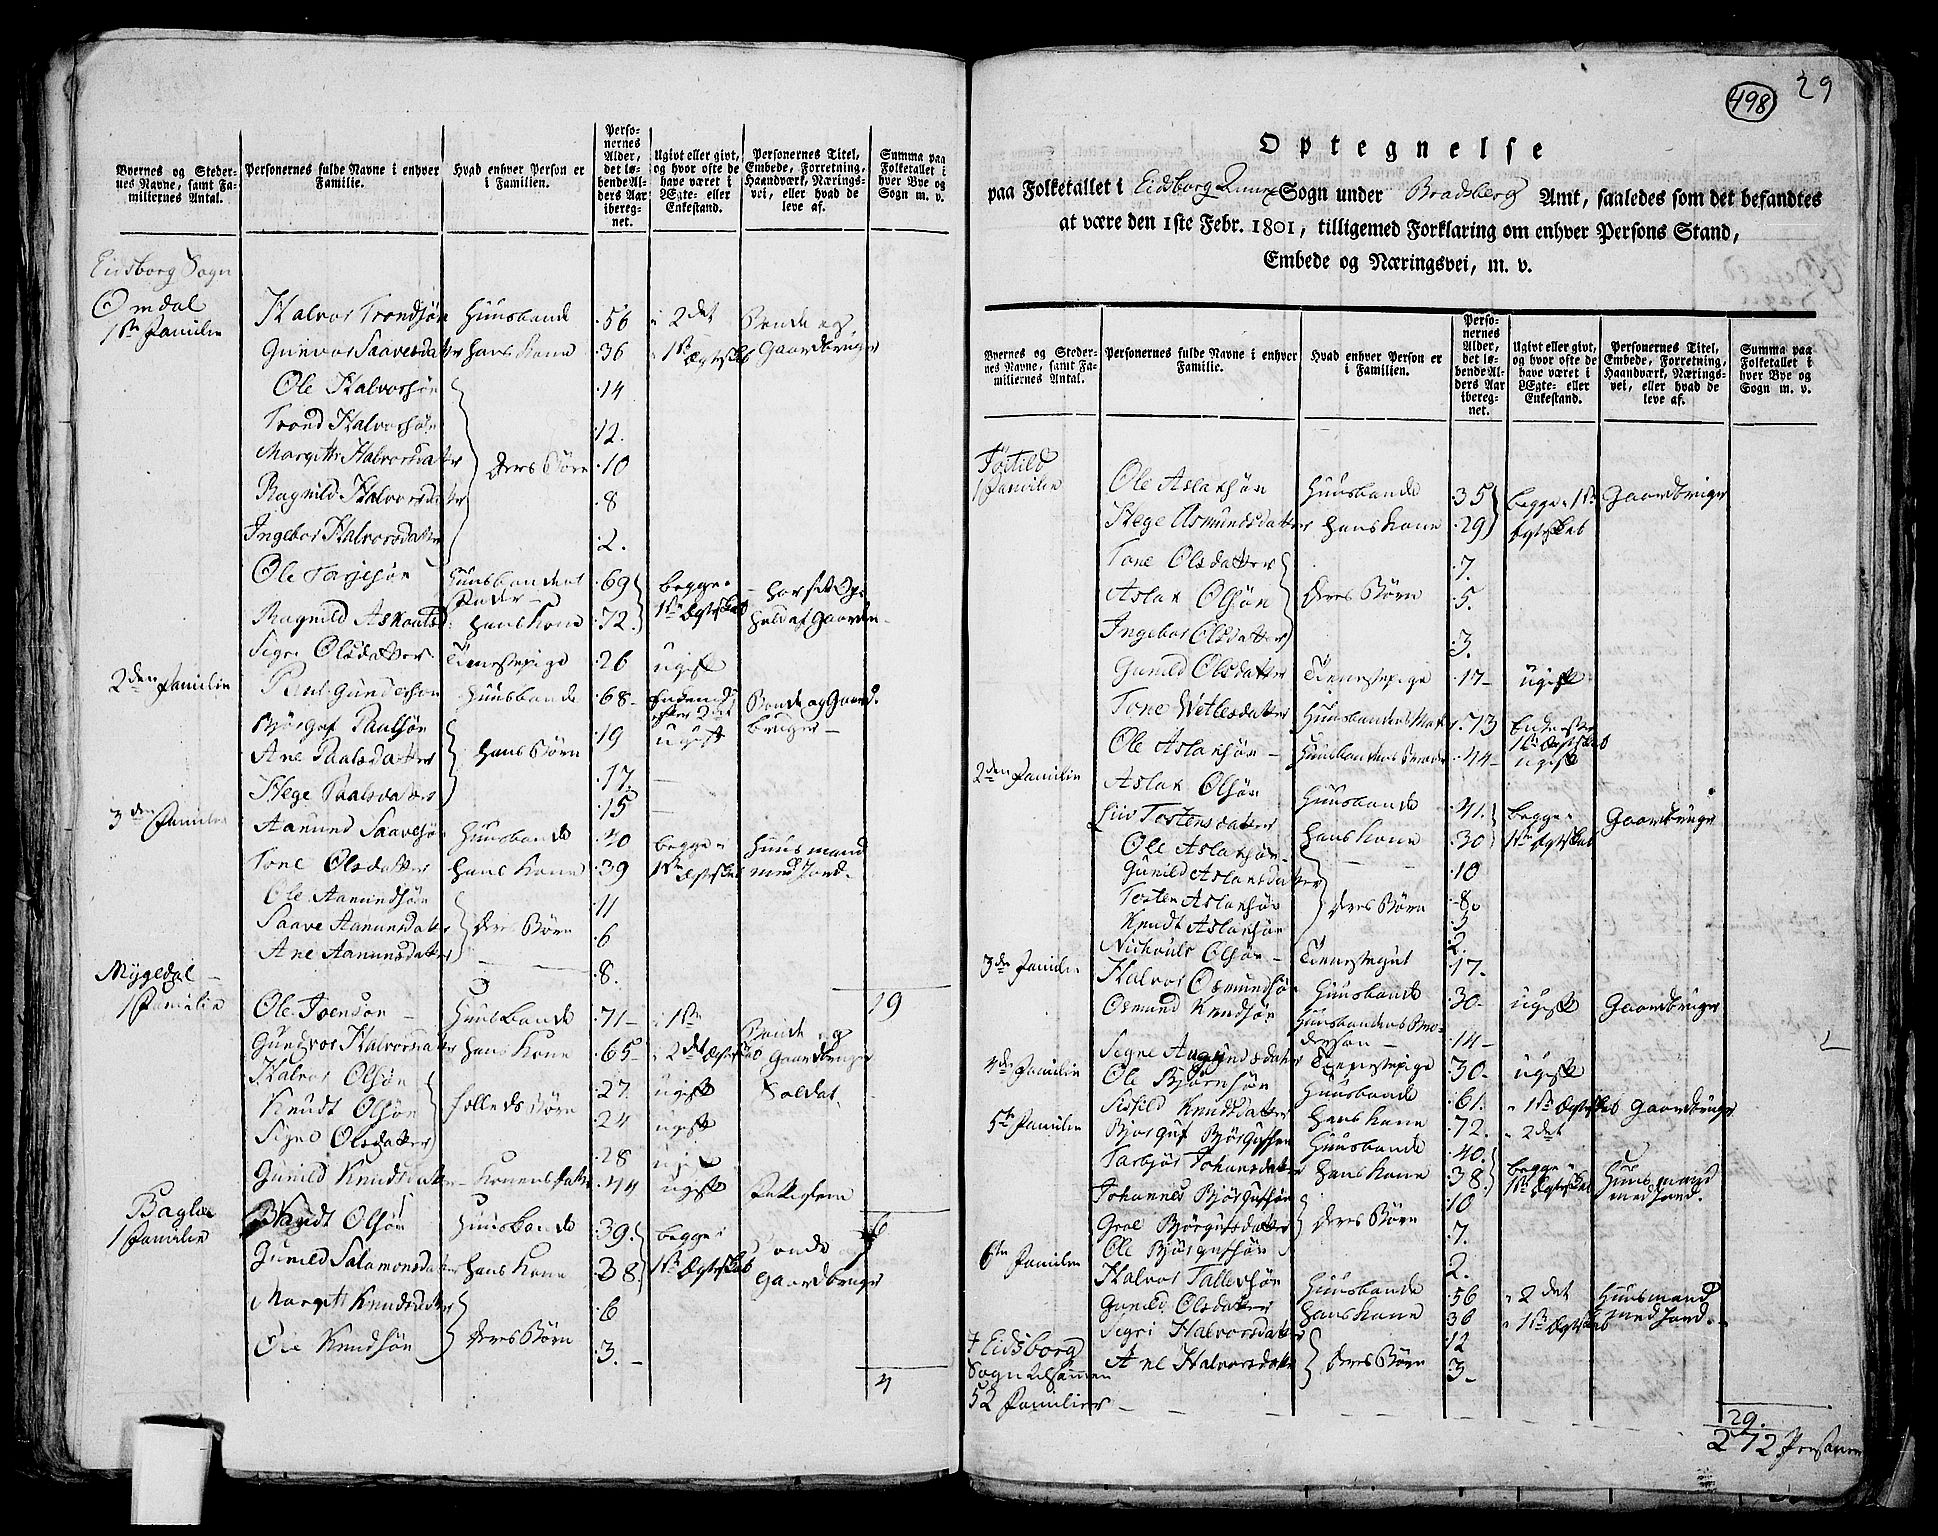 Byernes og Steder-
nes Navne, samt Fa-
miliernes Antal.
Personernes fulde Navne i enhver
Familie.
Hvad enhver Person er
i Familien.
Perso-
nernes
Alder,
det lø-
bende Al-
ders Aar
iberegnet.
Ugivt eller givt,
og hvor ofte de
have været i
Ægte- eller
Enkestand.
Personernes Titel,
Embede, Forretning,
Haandværk, Nærings-
vei, eller hvad de
leve af.
Summa paa
Folketallet i
hver Bye og
Sogn m. v.
Eidsborg Sogn
Omdal
1ste Familie
Halvor Trondsøn Huusbonde 56 i 2det Bonde og
Gunvor Saavesdatter hans Kone 36 1ste Ægteskab Gaardbruger
Ole Halvorsøn 14
Trond Halvorsøn 12.
Margitt Halvorsdatter deres Børn 10
Ragnild Halvorsdatter 8
Ingebor Halvorsdatter 2.
Ole Tarjesøn Huusbondens 69 begge
Ragnild hans Kone 72. 1ste Ægteskab hold af Gaarden
Sigri Olsdatter Tienestepige 26 ugift
2den Familie Paul Gundersøn Huusbonde 68 Bonde og Gaard-
Bjørgof Paulsøn 19 ugift bruger
Ane Paalsdatter hans Børn 17.
Hege Paalsdatter 15
3den Familie
Aanund Saavesøn Huusbonde 40 begge Huusmand
Tone Olsdatter hans Kone 39 1ste Ægteskab med Jord.
Ole Aanundsøn 11
Saave Aanunsdatter deres Børn 6
Ane Aanunsdatter 8.
Mygedal
19
1 Familie Ole Joensøn Huusbonde 71 1ste Bonde og
Gunvor Halvorsdatter hans Kone 65 2det Ægteskab Gaardbruger
Halvor Olsøn 27. ugift Soldat.
Knudt Olsøn fælleds Børn 24 ugift
Signe Olsdatter 28 ugift
Gunild Knudsdatter 44 ugift
6
Bagle
1 Familie Knudt Olsøn Huusbonde 39. begge Bonde og
Gunild Salamonsdatter hans Kone 38. 1ste Ægteskab Gaardbruger
Margitt Knudsdatter 6
Ole Knudsøn deres Børn 3.
4
498
29
Optegnelse
paa Folketallet i Eidsborg Sogn under Bradsberg Amt, saaledes som det befandtes
at være den 1ste Febr. 1801, tilligemed Forklaring om enhver Persons Stand,
Embede og Næringsvei, m. v.
Byernes og Steder-
nes Navne, samt Fa-
miliernes Antal.
Personernes fulde Navne i enhver
Familie.
Hvad enhver Person er
i Familien.
Perso-
nernes
Alder,
det lø-
bende Al-
ders Aar
iberegnet.
Ugivt eller givt,
og hvor ofte de
have været i
Ægte- eller
Enkestand.
Personernes Titel,
Embede, Forretning,
Haandværk, Nærings-
vei, eller hvad de
leve af.
Summa paa
Folketallet i
hver Bye og
Sogn m. v.
1 Familie Ole Aslaksøn Huusbonde 35 begge 1ste Gaardbruger
Hege Asmundsdatter hans Kone 29 Ægteskab
Tone Olsdatter 7.
Aslak Olsøn deres Børn 5.
Ingebor Olsdatter 3.
Gunild Olsdatter Tienestepige 17 ugift
Tone Wetlesdatter Huusbondens 73
Ole Aslaksøn Huusbondens 44 ugift
2den Familie
Aslak Olsøn Huusbonde 41. begge Gaardbruger
Liv Tostensdatter hans Kone 30 1ste Ægteskab
Ole Aslaksøn 10
Gunild Aslaksdatter
Tosten Aslaksøn deres Børn 8.
Knudt Aslaksøn 2.
Olsøn Tienestegut 17.
3de Familie
Halvor Osmundsøn Huusbonde 30 ugift Gaardbruger
Osmund Knudsøn Huusbondens Bro-
dersøn 14
Signe Tienestepige 30 ugift
4de Familie
Ole Bjørnsøn Huusbonde 61. 1ste Ægteskab Gaardbruger
Knudsdatter hans Kone 72. 2det
5te Familie
Bjørguf Bjørgufsøn Huusbonde 40. begge Huusmand
Tarbjør Johansdatter hans Kone 38. 1ste Ægteskab med Jord.
Johannes Bjørgufsøn 10
Groe Bjørgufsdatter deres Børn 7.
Ole Bjørgufsøn 2.
6te Familie
Halvor Tallefsøn Huusbonde 56 2det Huusmand
Gunild Olsdatter hans Kone 36 1ste Ægteskab med Jord.
Sigri Halvorsdatter 12
Ane Halvorsdatter deres Børn 3
I Eidsborg
Sogn tilsammen
52 Familier
29.
272 Personer